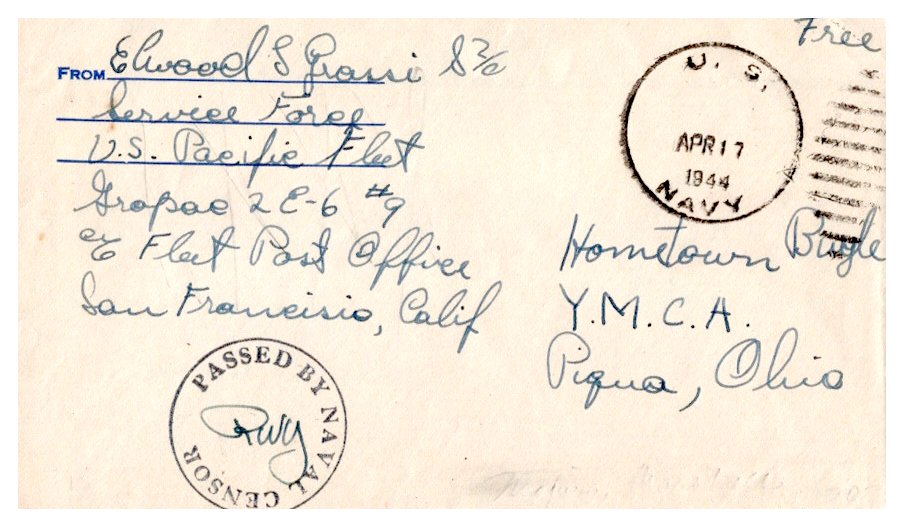 Free
FROM Elwood S Grassi S 2/c
Service Force
U.S. Pacific Fleet
Gropac 2 E-6 #9
c/o Fleet Post Office
San Francisio, Calif
U. S.
APR 17
1944
NAVY
Hometown Bugle
Y.M.C.A.
Piqua, Ohio
PASSED BY NAVAL CENSOR